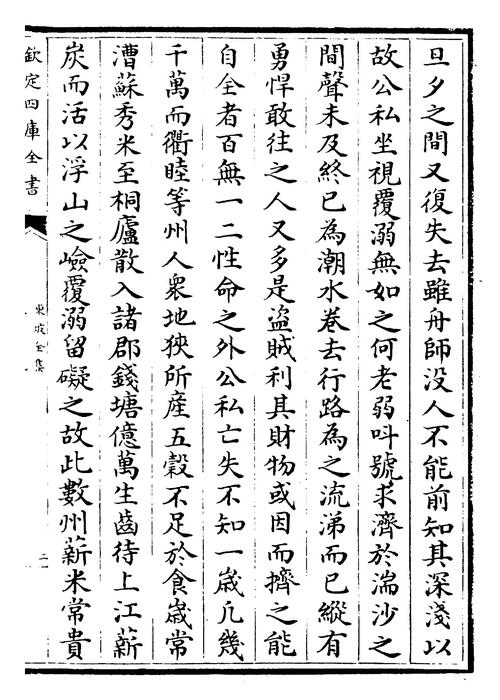 旦夕之間又復失去雖舟師没人不能前知其深淺以
故公私坐視覆溺無如之何老弱呌號求濟於湍沙之
間聲未及終已為潮水卷去行路為之流涕而已縱有
勇悍敢往之人又多是盗賊利其財物或因而擠之能
自全者百無一二性命之外公私亡失不知一嵗凡幾
千萬而衢睦等州人衆地狹所産五穀不足於食嵗常
漕蘇秀米至桐廬散入諸郡錢塘億萬生齒待上江薪
炭而活以浮山之嶮覆溺留礙之故此數州薪米常貴
欽定四庫全書
東坡全集
二